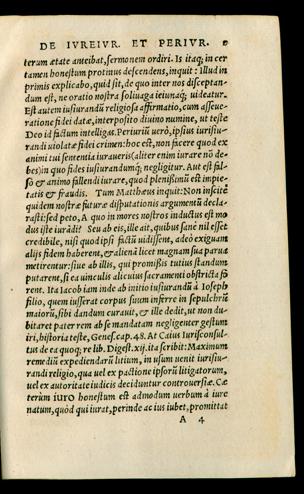 DE IVREIVR. ET PERIVR.
terum ætate anteibat, sermonem ordiri. Is itaq; in cer
tamen honestum protinus descendens, inquit: Illud in
primis explicabo, quid sit, de quo inter nos disceptan-
dum est, ne oratio nostra soliuaga ieiunaq́; uideatur.
Est autem iusiurandũ religiosa affirmatio, cum asseue-
ratione fidei datæ, interposito diuino numine, ut teste
Deo id factum intelligas. Periuriũ uerò, ipsius iurisiu-
randi uiolatæ fidei crimen: hoc est, non facere quod ex
animi tui sententia iuraueris (aliter enim iurare nõ de-
bes) in quo fides iusiurandumq́; negligitur. Aut est fal-
so & animo fallendi iurare, quod plenißimũ est impie-
tatis & fraudis. Tum Matthæus inquit: Non inscitè
quidem nostræ futuræ disputationis argumentũ decla-
rasti: sed peto, A quo in mores nostros inductus est mo
dus iste iurãdi? Seu ab eis, ille ait, quibus sanè nil esset
credibile, nisi quod ipsi factũ uidissent, adeò exiguam
alijs fidem haberent, & alienã licet magnam sua parua
metirentur: siue ab illis, qui promißis tutius standum
putarent, si ea uinculis alicuius sacramenti obstricta fo
rent. Ita Iacob iam inde ab initio iusiurandũ à Ioseph
filio, quem iusserat corpus suum inferre in sepulchrũ
maiorũ, sibi dandum curauit, & ille dedit, ut non du-
bitaret pater rem ab se mandatam negligenter gestum
iri, historia teste, Genes. cap. 48. At Caius Iurisconsul-
tus de ea quoq; re lib. Digest. xij. ita scribit: Maximum
remediũ expediendarũ litium, in usum uenit iurisiu-
randi religio, qua uel ex pactione ipsorũ litigatorum,
uel ex autoritate iudicis deciduntur controuersiæ. Cæ
terùm iuro honestum est admodum uerbum à iure
natum, quòd qui iurat, perinde ac ius iubet, promittat
A 4